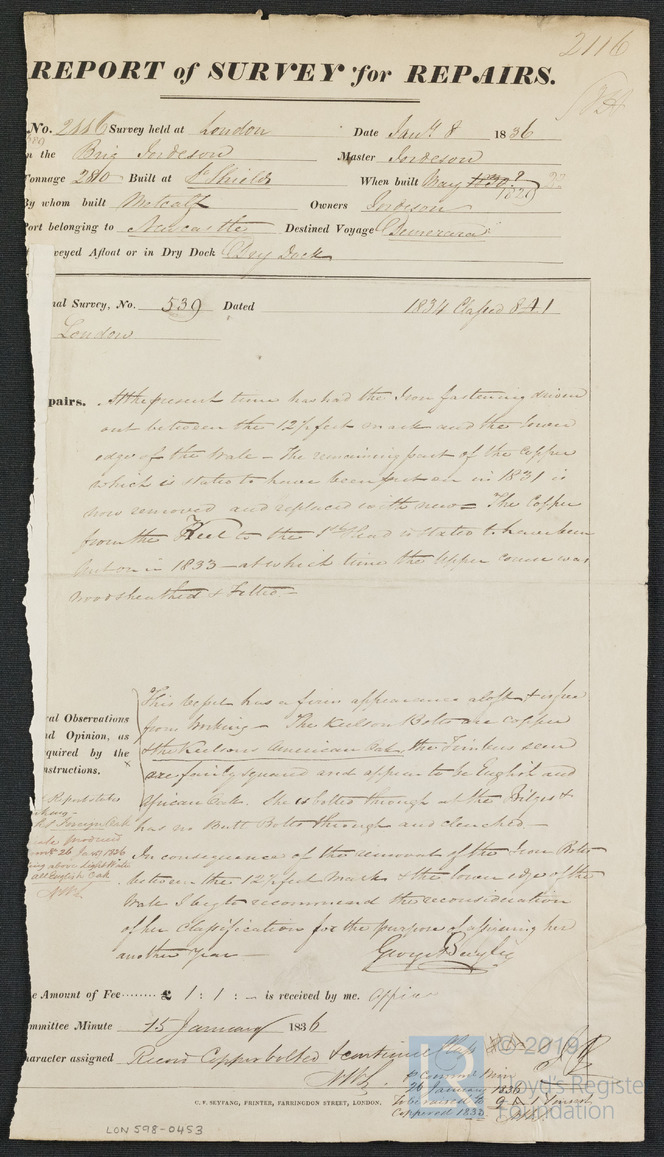 2116
REPORT of SURVEY for REPAIRS.
No. 2116 Survey held at London Date Jany. 8 1836
n the Brig Iordeson Master Iordeson
onnage 280 Built at So Shields When built May 1830 ? 1829
By whom built Metcalf Owners Iordeson
ort belonging to Newcastle Destined Voyage Demerara
veyed Afloat or in Dry Dock Dry Dock
nal Survey, No. 539 Dated 1834 Classed 8 A 1
London
pairs. At the present time has had the Iron fastening driven
out between the 12½ feet mark and the lower
edge of the Wale - The remaining part of the Copper
which is stated to have been put on in 1831 is
now removed and replaced with new = The Copper
from the Keel to the Lead is stated to have been
put on in 1833 - at which time the upper course was
Woodsheathed & Felted.-
al Observations
nd Opinion, as
quired by the
nstructions.
This Vessel has a firm appearance aloft & is free
from Working - The Keelson Bolts are Copper
& the Keelsons American Oak, the Timbers seen
are fairly squared and appear to be English and
African Oak. She is bolted through at the Bilges &
has no Butt Bolts through and clenched -
Report states
Foreign Oak
produced
26 Jany 1836
above Light Wale
all English Oak
In consequence of the removal of the Iron Bolts
between the 12½ feet Mark & the lower edge of the
Wale I beg to recommend the reconsideration
of her Classification for the purpose of assigning her
another Year -
George Bayley
e Amount of Fee........ £ 1 : 1 : - is received by me.
mmittee Minute 15 January 1836
haracter assigned Record Copperbolted & continued
Comm Min
26 January 1836
To be raised to 9 A 1
Coppered 1835
C. F. SEYFANG, PRINTER, FARRINGDON STREET, LONDON.
LON 598-0453
© 2019
Lloyd's Register
Foundation